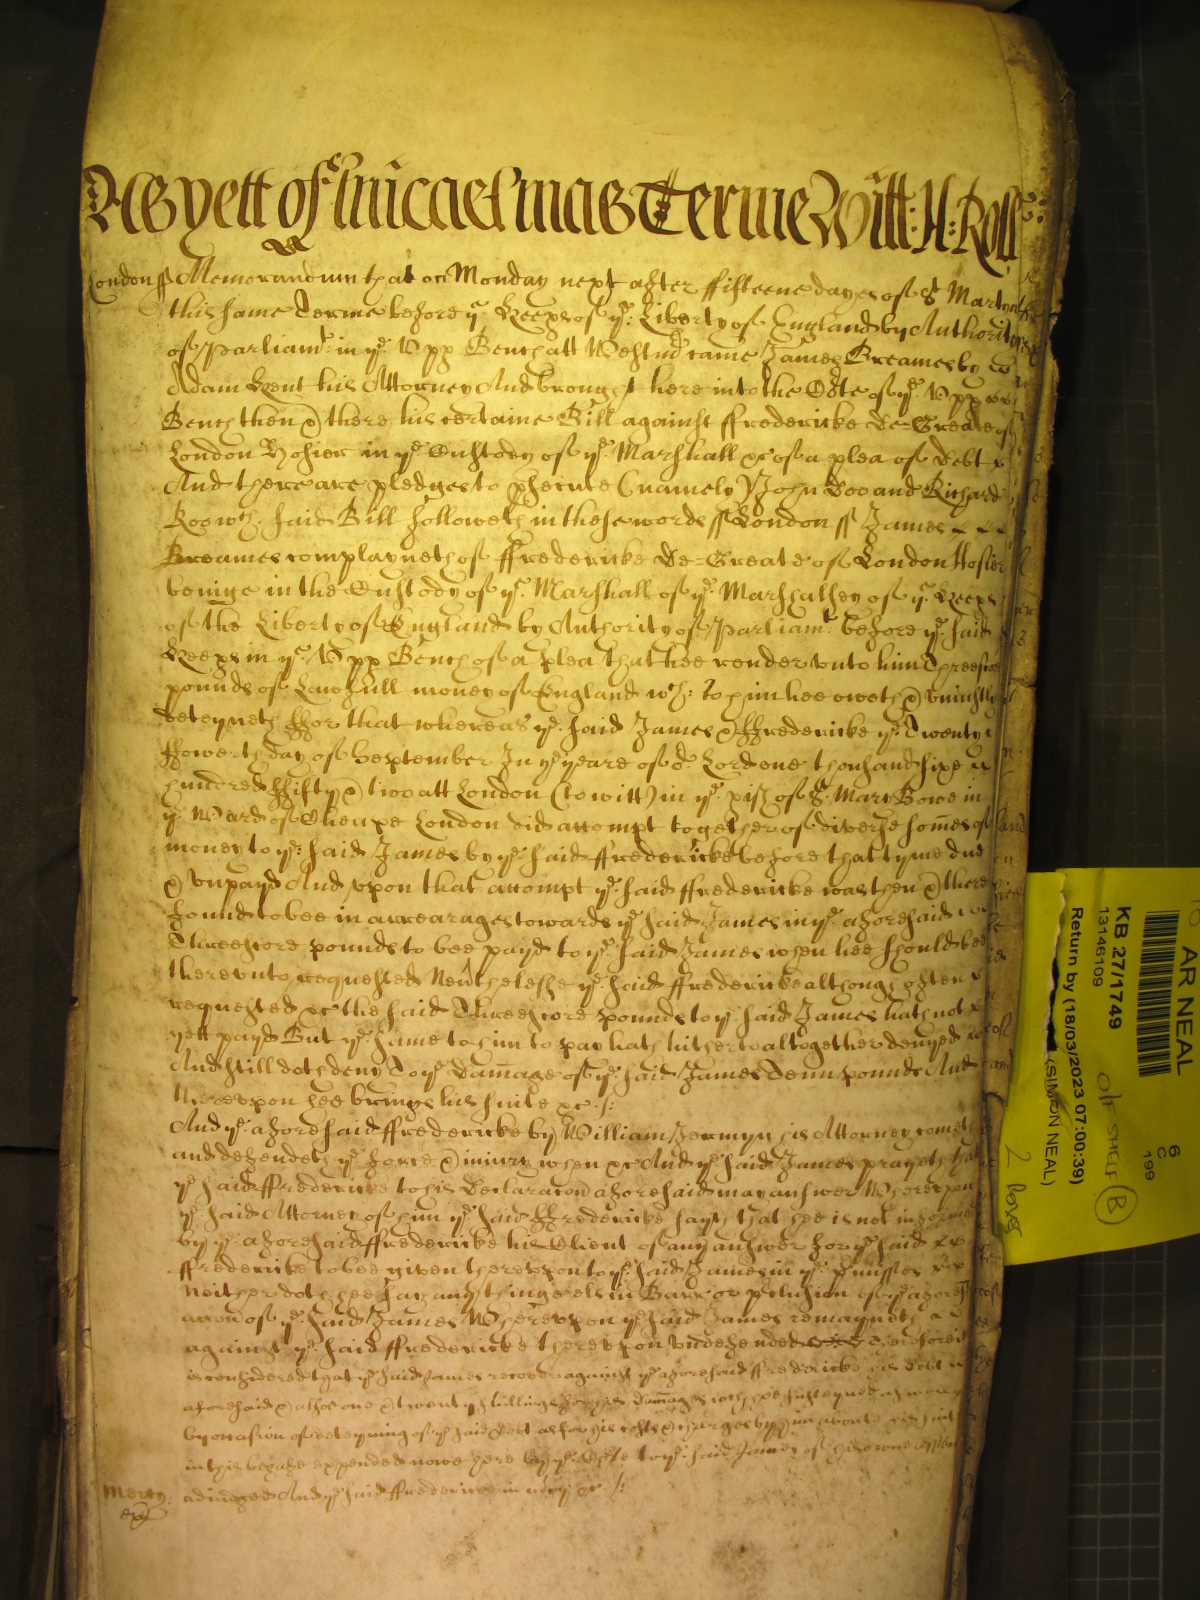 As yett of Michaelmas Terme Witt: H: Roll
London ss Memorandum that on Monday next after ffifteene dayes of St Martyn
this same Terme before ye Keeps of ye: Liberty of England by Authority
of Parliamt: in ye Upp Bench att Westmr came James Breames by
Adam Kent his Attorney And brought here into the Cote of ye Upp
Bench then & there his certaine Bill against ffredericke De=Greate of
London Hosier in ye Custody of ye Marshall &c of a plea of debt
And there are pledges to psecute (namely) John Doo and Richard
Roo wch said Bill followeth in these words ss London ss James
Breames complayneth of ffredericke De=Greate of London Hosier
beinge in the Custody of ye Marshall of ye Marshalsey of ye Keeps
of the Liberty of England by Authority of Parliamt before ye said
Keeps in ye Upp Bench of a plea that hee render unto him Threescore
pounds of Lawfull money of England wch: to him hee oweth & uniustly
deteyneth ffor that whereas ye said James & ffredericke ye Twenty
ffowerth day of September In ye yeare of or Lord one thousand sixe
hundred ffifty & two att London (to witt) in ye pish of St Mary Bowe in
ye Ward of Cheape London did accompt together of diverse somes of
money to ye: said James by ye said ffredericke before that tyme due
& unpayd And upon that accompt ye said ffredericke was then & there
found to bee in arrearages towards ye said James in ye aforesaid
Threescore pounds to bee payd to ye said James when hee should bee
thereunto requested Nevthelesse ye said ffredericke although often
requested &c the said Threescore pounds to ye said James hath not
yett payd But ye same to him to pay hath hitherto altogether denyed
And still doth deny To ye damage of ye said James Tenn pounds And
thereupon hee brings his suite &c ./:
And ye aforesaid ffredericke by William Jermyn his Attorney cometh
and defendeth ye force & iniury when &c And ye said James prayeth that
ye said ffredericke to his Declaracon aforesaid may answer Whereupon
ye said Attorney of him ye said ffredericke sayth that hee is not informed
by ye aforesaid ffredericke his Client of any answer for ye said
ffredericke to bee given thereupon to ye said James in ye pmisses
Neither doth hee say any thinge els in Barr or pclusion of ye aforesd
accon of ye said James Whereupon ye said James remayneth
against ye said ffredericke thereupon undefended Therefore it
is considered that ye said James recover against ye aforesaid ffredericke his debt
aforesaid & alsoe one & twenty shillings for his damages wch hee susteyned as well
by occasion of deteyning of ye said debt as for his costs & charges by him about his suit
in this behalfe expended nowe here by ye Cote to ye said James of his owne assent
adiudged And ye said ffredericke in mercy &c ./:
Mercy: